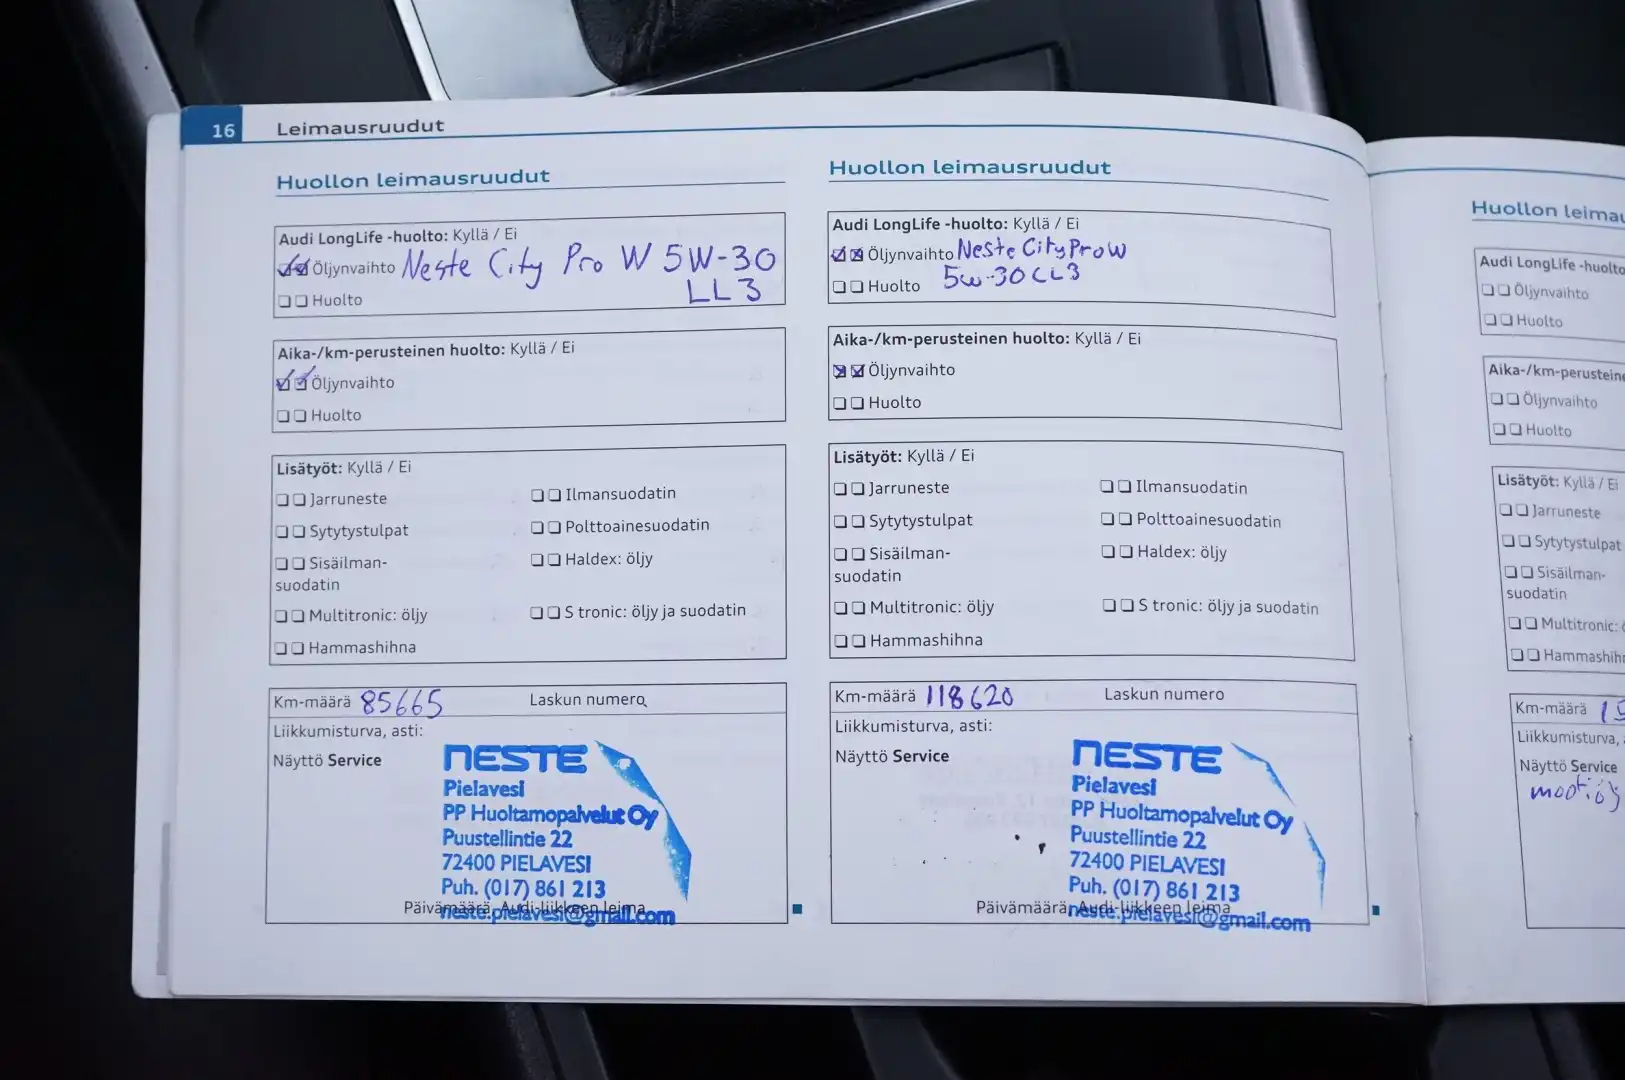 16 Leimausruudut
Huollon leimausruudut
Audi LongLife -huolto: Kyllä / Ei
Öljynvaihto Neste City Pro W 5W-30
LL3
Huolto
Aika-/km-perusteinen huolto: Kyllä / Ei
Öljynvaihto
Huolto
Lisätyöt: Kyllä / Ei
Jarruneste
Ilmansuodatin
Sytytystulpat
Polttoainesuodatin
Sisäilman-
suodatin
Haldex: öljy
Multitronic: öljy
S tronic: öljy ja suodatin
Hammashihna
Km-määrä 85665 Laskun numero
Liikkumisturva, asti:
Näyttö Service
NESTE
Pielavesi
PP Huoltamopalvelut Oy
Puustellintie 22
72400 PIELAVESI
Puh. (017) 861 213
Päivämäärä, Audi-liikkeen leima
neste.pielavesi@gmail.com
Huollon leimausruudut
Audi LongLife -huolto: Kyllä / Ei
Öljynvaihto Neste City Pro W
5w-30 CL3
Huolto
Aika-/km-perusteinen huolto: Kyllä / Ei
Öljynvaihto
Huolto
Lisätyöt: Kyllä / Ei
Jarruneste
Ilmansuodatin
Sytytystulpat
Polttoainesuodatin
Sisäilman-
suodatin
Haldex: öljy
Multitronic: öljy
S tronic: öljy ja suodatin
Hammashihna
Km-määrä 118620 Laskun numero
Liikkumisturva, asti:
Näyttö Service
NESTE
Pielavesi
PP Huoltamopalvelut Oy
Puustellintie 22
72400 PIELAVESI
Puh. (017) 861 213
Päivämäärä, Audi-liikkeen leima
neste.pielavesi@gmail.com
Huollon leimau
Audi LongLife -huolto
Öljynvaihto
Huolto
Aika-/km-perustein
Öljynvaihto
Huolto
Lisätyöt: Kyllä / Ei
Jarruneste
Sytytystulpat
Sisäilman-
suodatin
Multitronic:
Hammashih
Km-määrä
Liikkumisturva,
Näyttö Service